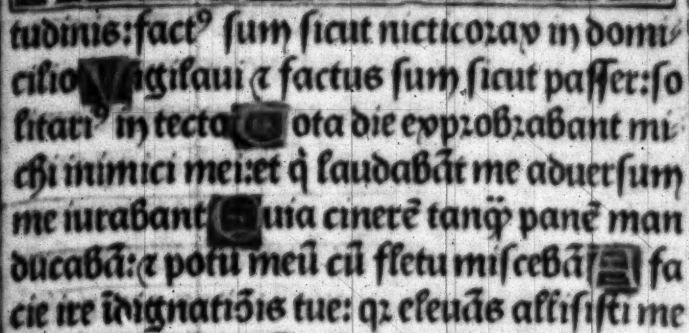 tudinis: factꝰ ſum ſicut nicticoꝛax in domi⸗
cilio Vigilaui ⁊ factus ſum ſicut paſſer: ſo
litariꝰ in tecto Tota die expꝛobꝛabant mi
chi inimici mei: et q̇ laudabāt me aduerſum
me iurabant Quia cinerē tanq̈ʒ panē man
ducabā: ⁊ potū meū cū fletu miſcebā A fa
cie ire īdignatiōis tue: qꝛ eleuās alliſiſti me